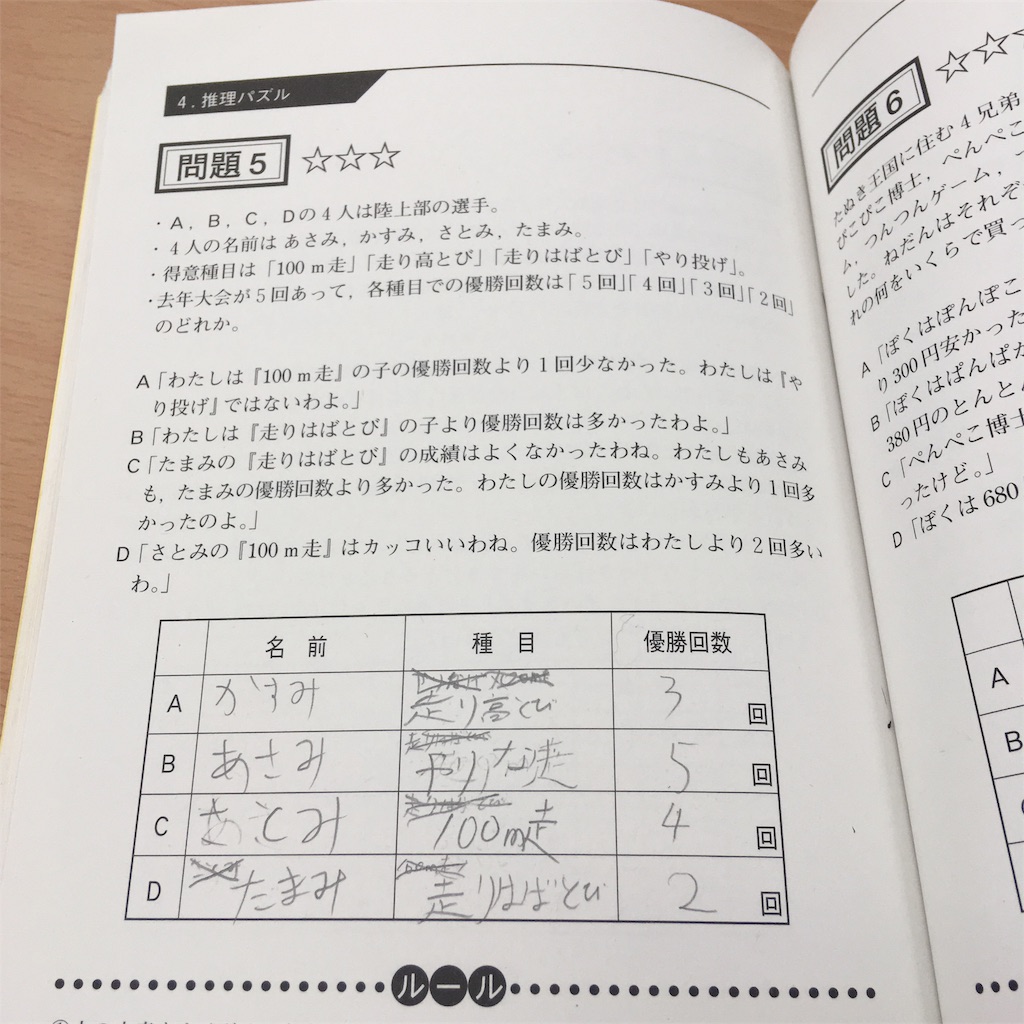 4. 推理パズル
問題5 ☆☆☆
・A，B，C，Dの4人は陸上部の選手。
・4人の名前は あさみ，かすみ，さとみ，たまみ。
・得意種目は「100m走」「走り高とび」「走りはばとび」「やり投げ」。
・去年大会が5回あって，各種目での優勝回数は「5回」「4回」「3回」「2回」
のどれか。
A「わたしは『100m走』の子の優勝回数より1回少なかった。わたしは『や
り投げ』ではないわよ。」
B「わたしは『走りはばとび』の子より優勝回数は多かったわよ。」
C「たまみの『走りはばとび』の成績はよくなかったわね。わたしもあさみ
も，たまみの優勝回数より多かった。わたしの優勝回数はかすみより1回多
かったのよ。」
D「さとみの『100m走』はカッコいいわね。優勝回数はわたしより2回多い
わ。」
名前 種目 優勝回数
A かすみ 走り高とび 3回
B あさみ やり 5回
C さとみ 100m走 4回
D たまみ 走りはばとび 2回
ルール
問題6 ☆☆
たぬき王国に住む4兄弟
ぴこぴこ博士，ぺんぺこ
ム，つんつんゲーム，
した。ねだんはそれぞ
れの何をいくらで買っ
A「ぼくはぽんぽこ
り300円安かった
B「ぼくはぱんぱか
380円のとんとん
C「ぺんぺこ博士
ったけど。」
D「ぼくは680
A
B